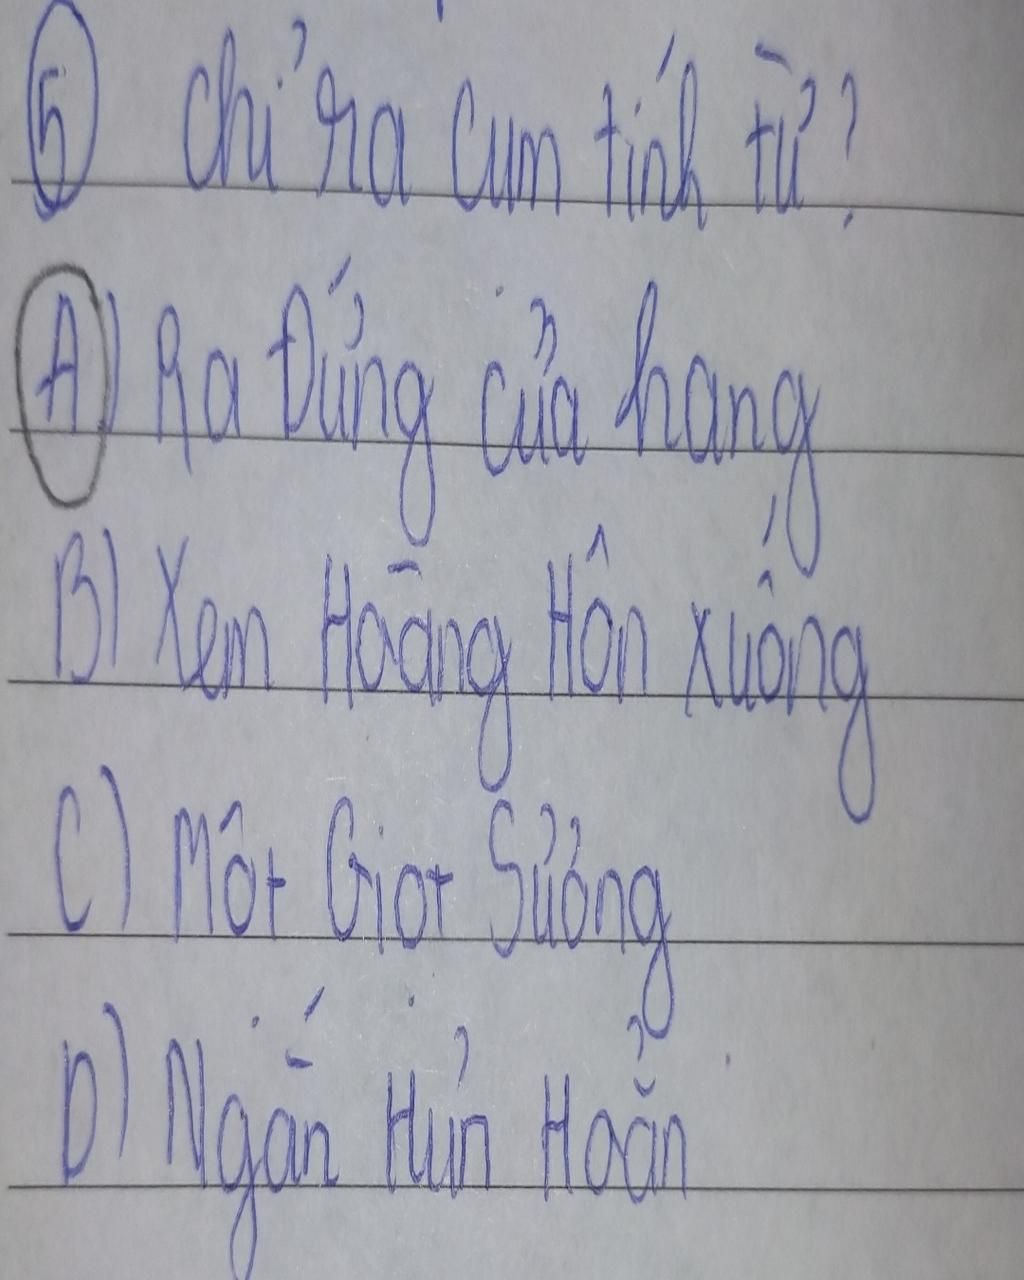 5 Chỉ ra cum tính từ?
A) Ra Đứng cửa hang
B) Xem Hoàng Hôn xuống
C) Môt Giot Sương
D) Ngắn Hủn Hoẳn